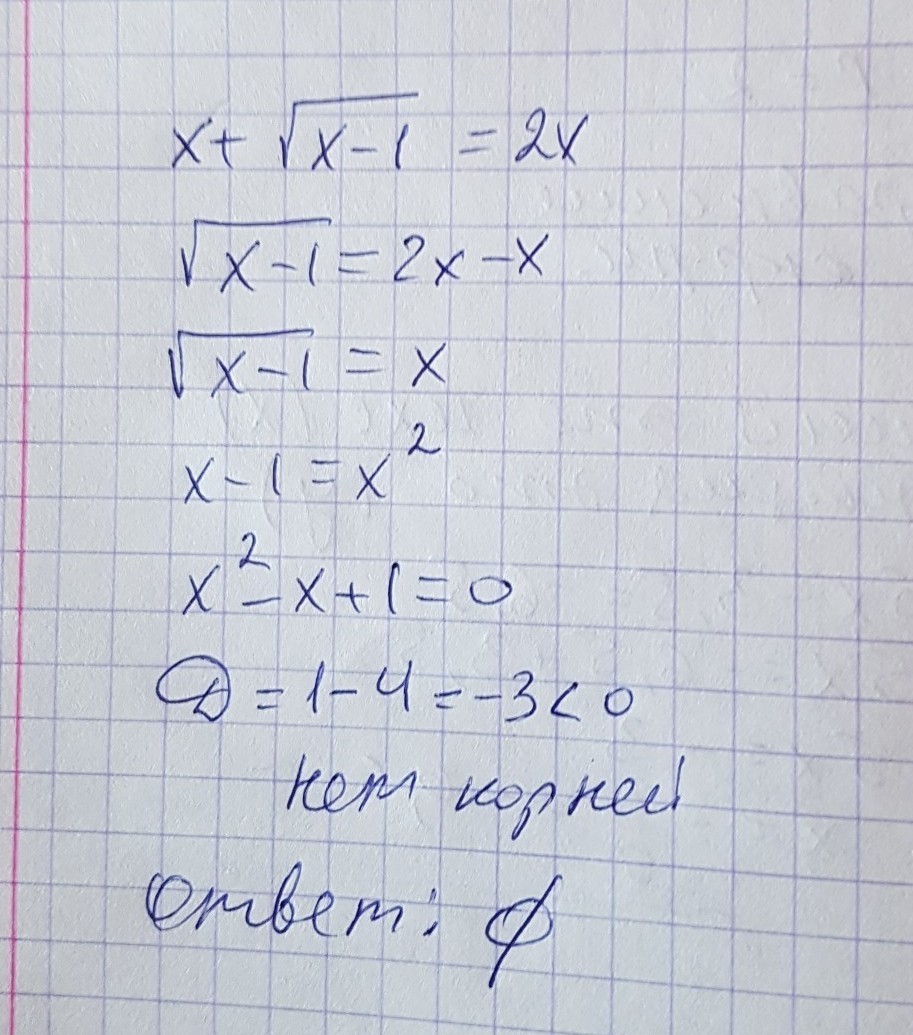 x + √(x-1) = 2x
√(x-1) = 2x - x
√(x-1) = x
x - 1 = x²
x² - x + 1 = 0
D = 1 - 4 = -3 < 0
нет корней
Ответ: ∅